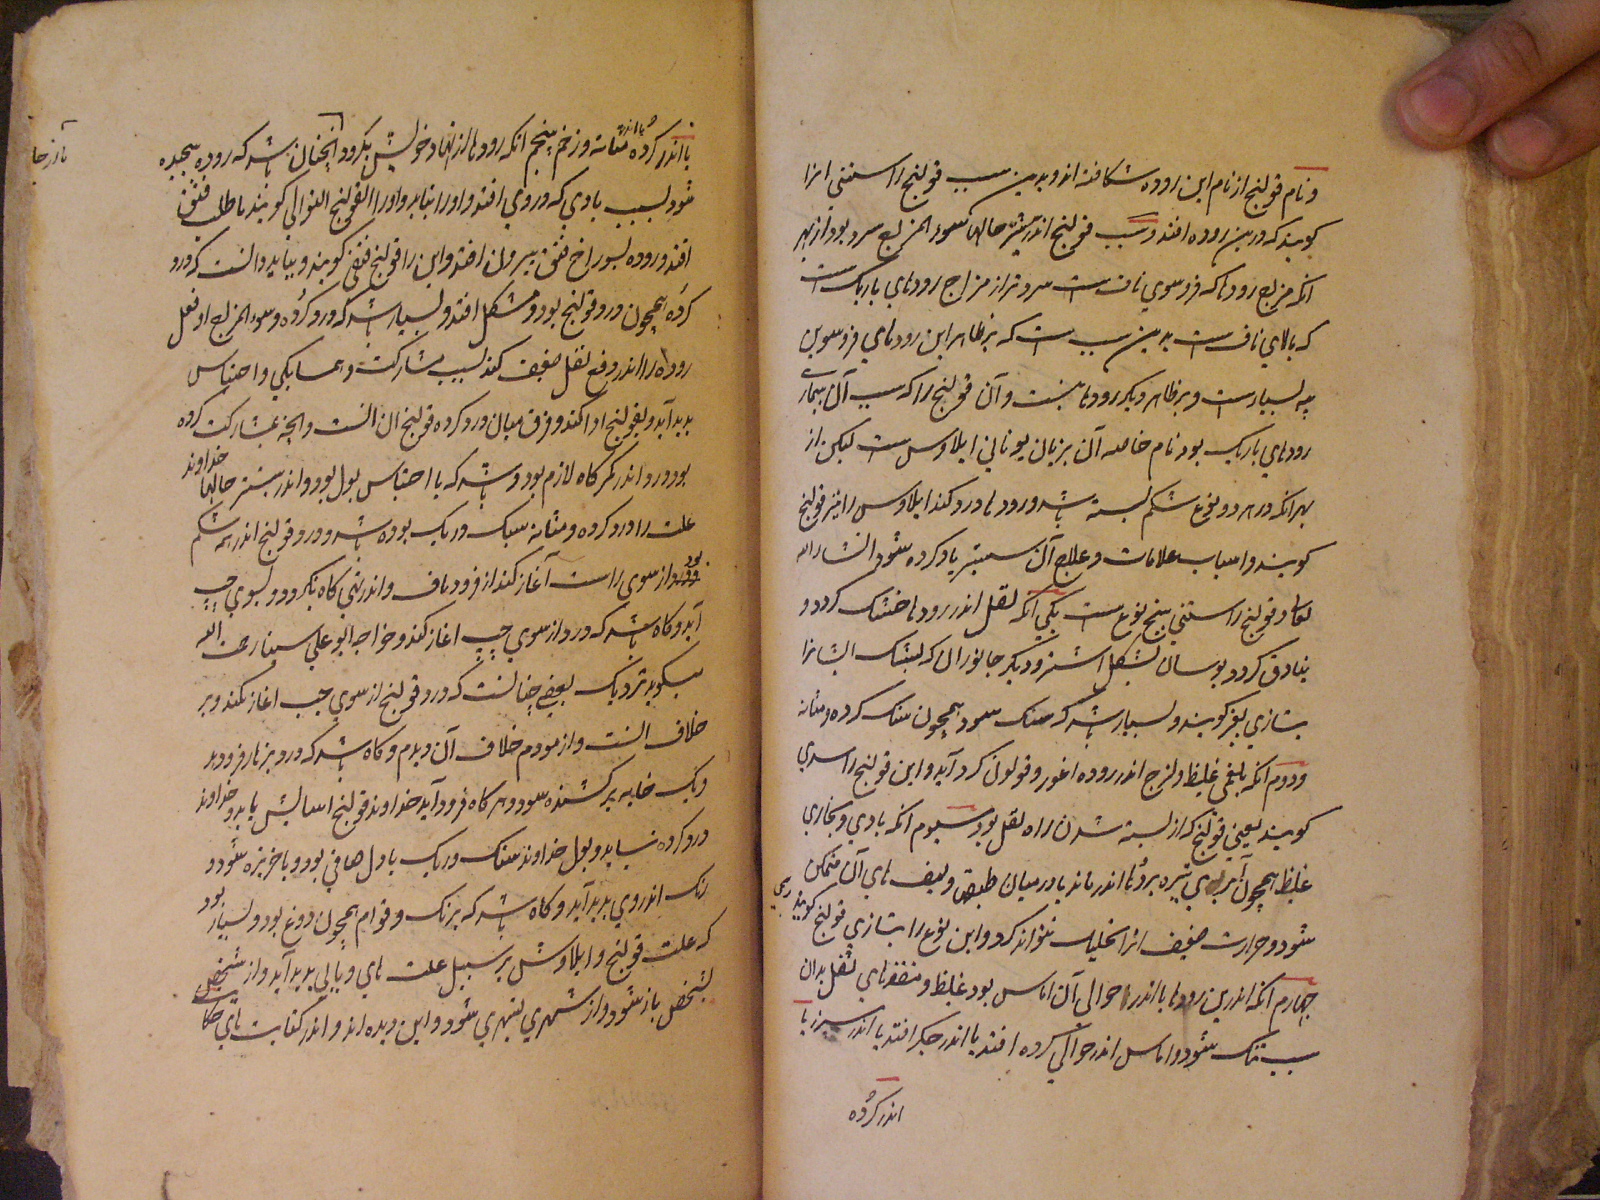 و نام قولنج از نام این روده شکافته اند و بدین سبب قولنج راستنی انرا
کویند که درین روده افتد و سبب قولنج اندر بیشتر حالها سوء المزاج سرد بود از بهر
انکه مزاج رودها که فرو سوی ناف ست سردتر از مزاج رودهای باریک ست
که بالای ناف ست بدین سبب ست که بر ظاهر این رودهای فرو سوین
پیه بسیارست و بر ظاهر دیکر رودها نیست و آن قولنج را که سبب آن بیماری
رودهای باریک بود نام خاصه آن بزبان یونانی ایلاوس ست لیکن از
بهر انکه در هر دو نوع شکم بسته باشد و رودها درد کند ایلاوس را نیز قولنج
کویند و اسباب علامات و علاج آن سپستر یاد کرده شود انشاء الله
تعالی و قولنج راستنی پنج نوع ست یکی انکه ثفل اندر رودها خشک کردد و
بنادق کردد بوسان بشکل اشتر و دیکر جانوران که پشک ایشانرا
بتازی بعر کویند و بسیار باشد که سنک شود همچون سنک کرده و مثانه
و دوم انکه بلغمی غلیظ و لزج اندر روده اعور و قولون کرد آید و این قولنج را سدی
کویند یعنی قولنج که از بسته شدن راه ثفل بود سیوم انکه بادی و بخاری
غلیظ همچون آبری تیره برودها اندر ماند یا در میان طبق و لیف های آن متمکن
شود و حرارت ضعیف انرا تحلیل نتواند کرد و این نوع را بتازی قولنج ریحی کویند
چهارم انکه اندرین رودها یا اندر حوالی آن اماس بود غلیظ و منفذهای ثفل بدان
سبب تنک شود و اماس اندر حوالی کرده افتد یا اندر جکر افتد یا اندر سپرز یا
اندر کرده
یا اندر کرده یا اندر مثانه و زخم پنجم انکه رودها از نهاد خویش بکردد و انچنان باشد که روده پیچیده
شود بسبب بادی که در وی افتد و اورا بتابد و اورا القولنج التوالی کویند یا طلب فتق
افتد و روده بسوراخ فتق بیرون افتد و این را قولنج فتقی کویند و بباید دانست که درد
کرده همچون درد قولنج بود و مشکل افتد و بسیار باشد که درد کرده و سوء المزاج او فعل
روده را اندر دفع ثفل ضعیف کند بسبب مشارکت و همسایکی و احتباس
پدید آید و بقولنج ادا کند و فرق میان درد کرده و قولنج ان انست و انچه بمشارکت کرده
بود درد اندر کمرکاه لازم بود و باشد که با احتباس بول بود و اندر بیشتر حالها خداوند
علت را درد کرده و مثانه سنک و ریک بوده باشد و درد قولنج اندر همه شکم
بود و از سوی راست آغاز کند از فرود ناف و اندر تهی کاه بکردد و بسوی چپ
آید و کاه باشد که درد از سوی چپ اغاز کند و خواجه ابوعلی سینا رحمة الله
میکوید نزدیک بعضی چنانست که درد قولنج از سوی چپ اغاز نکند و بر
خلاف انست و ازمودم خلاف آن دیدم و کاه باشد که درد بزهار فرود
و یک خایه برکشیده شود و هرکاه فرود آید خداوند قولنج اسایش یابد و خداوند
درد کرده نیابد و بول خداوند سنک و ریک باول صافی بود و باخر تیره شود و
رنک اندر وی پدید آید و کاه باشد که برنک و قوام همچون دوغ بود و بسیار بود
که علت قولنج و ایلاوش بر سبیل علت های وبایی پدید آید و از شخص
بشخص باز شود و از شهری بشهری شود و این دیده اند و اندر کتابت های حکا